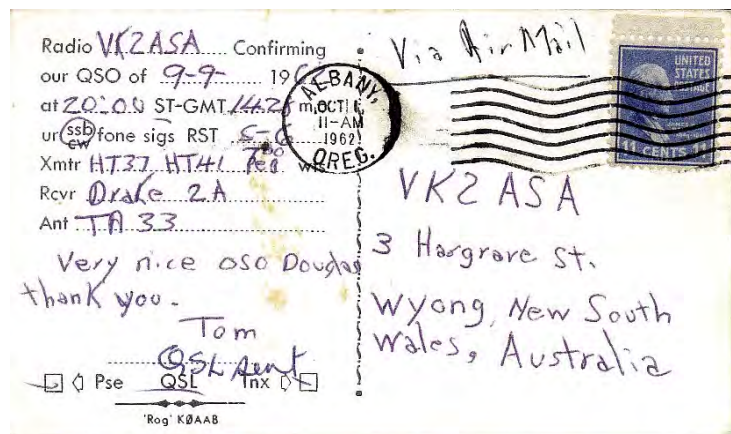 Radio VK2ASA Confirming
our QSO of 9-9- 196
at 20:00 ST-GMT 14.28 m
ur ssb cw fone sigs RST 5-
Xmtr HT37 HT41 w
Rcvr Drake 2A
Ant TA 33
Very nice QSO Douglas
thank you.
Tom
QSL sent
Pse QSL Tnx
'Rog' KØAAB
Via Air Mail
ALBANY,
OCT 1
11-AM
1962
OREG.
UNITED
STATES
POSTAGE
11 CENTS 11
VK2ASA
3 Hargrave St.
Wyong, New South
Wales, Australia